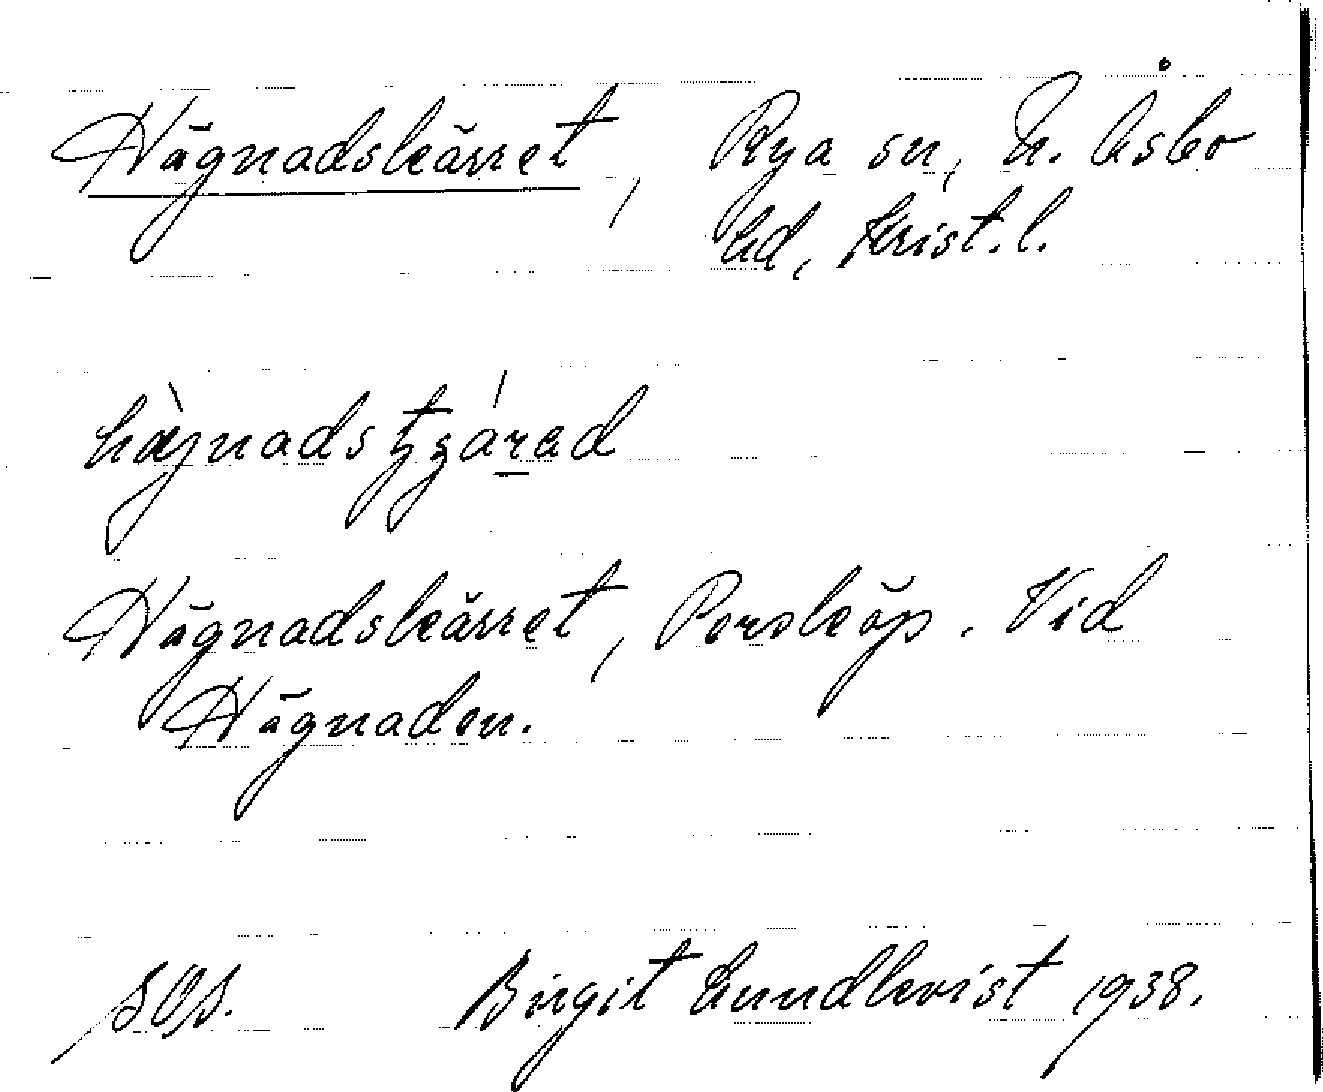 Hägnadskärret, Rya sn, N. Åsbo
hd, Krist. l.
Hägnadskärret, Persköp. Vid
Hägnaden.
SOS. Birgit Lundkvist 1938.